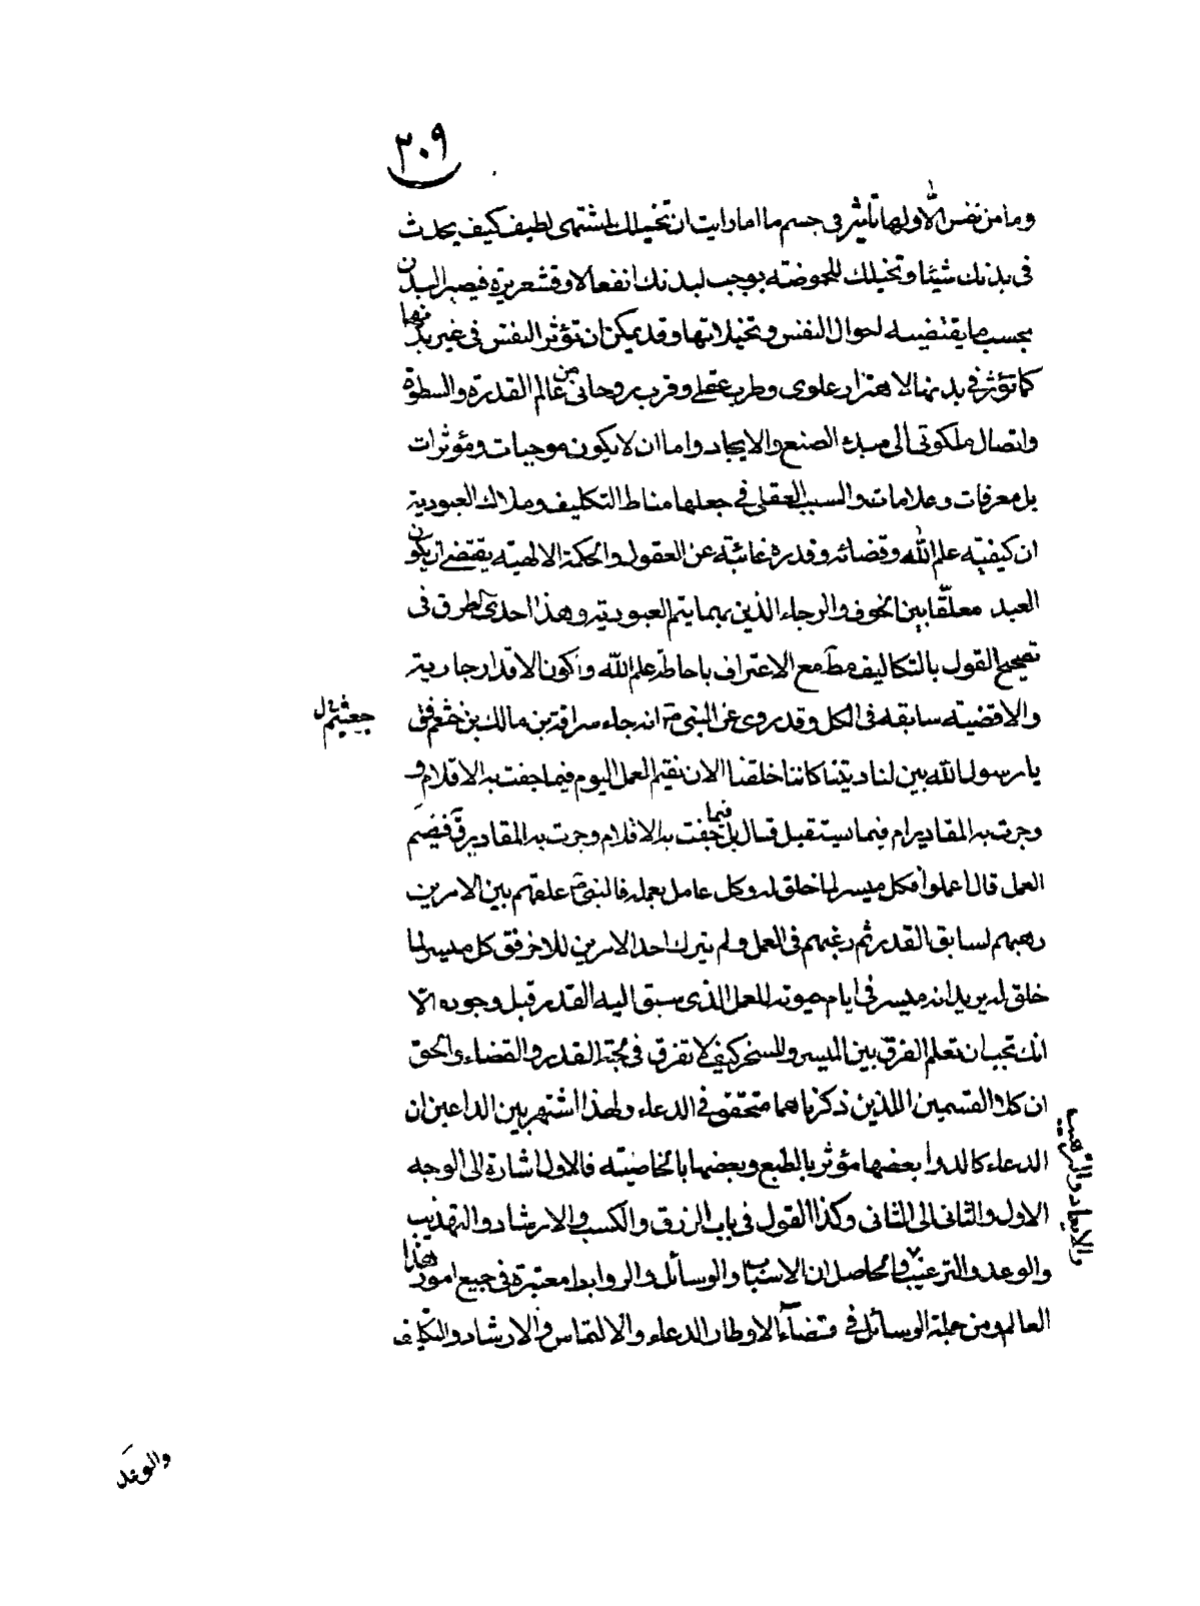 ٣٠٩
وما من نفس الّا ولها تأثير في جسم ما اما رايت ان تخيلك لمشتهى لطيف كيف يحدث
في بدنك شيئا وتخيلك للحموضة يوجب لبدنك انفعالا وقشعريرة فيصير البدن
بحسب ما يقتضيه احوال النفس وتخيلاتها وقد يمكن ان تؤثر النفس في غير بدنها
كما تؤثر في بدنها لاهتزاز علوى وطرب عقلي وقرب روحانى من عالم القدرة والسطوة
واتصال ملكوتى الى مبدء الصنع والايجاد واما ان لا يكون موجبات ومؤثرات
بل معرفات وعلامات والسبب العقلى في جعلها مناط التكليف وملاك العبودية
ان كيفية علم الله وقضائه وقدره غائبة عن العقول والحكمة الالهية يقتضى ان يكون
العبد معلّقا بين الخوف والرجاء الذين بهما يتم العبودية وهذا احدى الطرق في
تصحيح القول بالتكاليف مط مع الاعتراف باحاطة علم الله وكون الاقدار جارية
والاقضية سابقة في الكل وقد روى عن النبى ص انه جاء سراقة بن مالك بن خثعم فق
جعيثم فقال
يا رسول الله بين لنا ديننا كاننا خلقنا الان نقيم العمل اليوم فيما جفت به الاقلام و
وجرت به المقادير ام فيما يستقبل قال بل فيما جفت به الاقلام وجرت به المقادير ق ففيم
العمل قال اعملوا فكل ميسر لما خلق له وكل عامل بعمله فالنبى ص علقهم بين الامرين
رهبهم لسابق القدر ثم رغبهم في العمل ولم يترك احد الامرين للاخر فق كل ميسر لما
خلق له يريد انه ميسر في ايام حيوته للعمل الذى سبق اليه القدر قبل وجوده الّا
انك تجب ان تعلم الفرق بين الميسر والمسخر كيلا تفرق في لجة القدر والقضاء والحق
ان كلا القسمين اللذين ذكرناهما متحقق في الدعاء ولهذا اشتهر بين الداعين ان
الدعاء كالدوا بعضها مؤثر بالطبع وبعضها بالخاصية فالاول اشارة الى الوجه
الاول والثانى الى الثانى وكذا القول في باب الرزق والكسب والارشاد والتهذيب
والوعد والترغيب والحاصل ان الاسباب والوسائل والروابط معتبرة في جميع امور هذا
والايعاد والترهيب
العالم ومن جملة الوسائل في قضاء الاوطار الدعاء والالتماس والارشاد والتكليف
والوعد